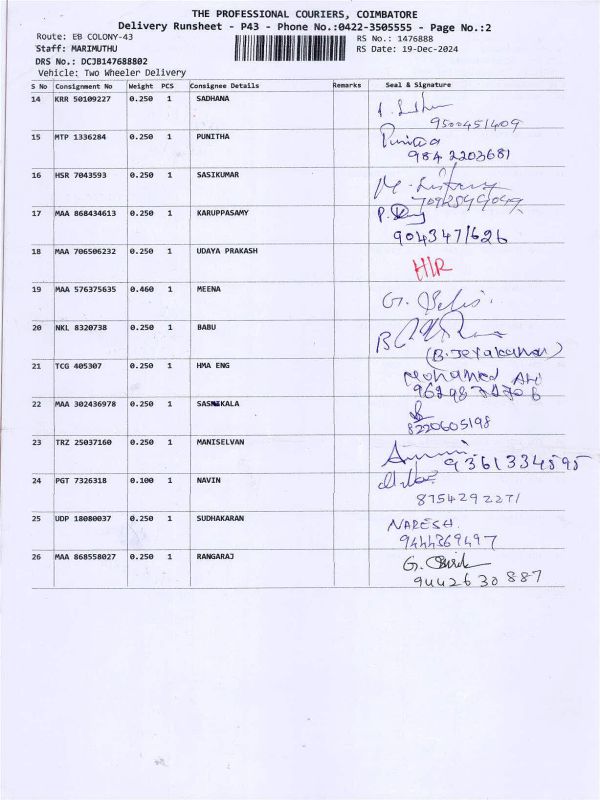 THE PROFESSIONAL COURIERS, COIMBATORE
Delivery Runsheet - P43 - Phone No.:0422-3505555 - Page No.:2
Route: EB COLONY-43
RS No.: 1476888
Staff: MARIMUTHU
RS Date: 19-Dec-2024
DRS No.: DCJB147688802
Vehicle: Two Wheeler Delivery
S No Consignment No Weight PCS Consignee Details Remarks Seal & Signature
14 KRR 50109227 0.250 1 SADHANA
9500451409
15 MTP 1336284 0.250 1 PUNITHA Punitha
984 2203681
16 HSR 7043593 0.250 1 SASIKUMAR
17 MAA 868434613 0.250 1 KARUPPASAMY
9043471626
18 MAA 706506232 0.250 1 UDAYA PRAKASH
H/R
19 MAA 576375635 0.460 1 MEENA
G.
20 NKL 8320738 0.250 1 BABU
(B. Jeyakumar)
21 TCG 405307 0.250 1 HMA ENG
Mohamed Ali
22 MAA 302436978 0.250 1 SASIKALA
8220605198
23 TRZ 25037160 0.250 1 MANISELVAN
9361334595
24 PGT 7326318 0.100 1 NAVIN
8754292271
25 UDP 18080037 0.250 1 SUDHAKARAN
NARESH.
9444369497
26 MAA 868558027 0.250 1 RANGARAJ
G.
9442630887